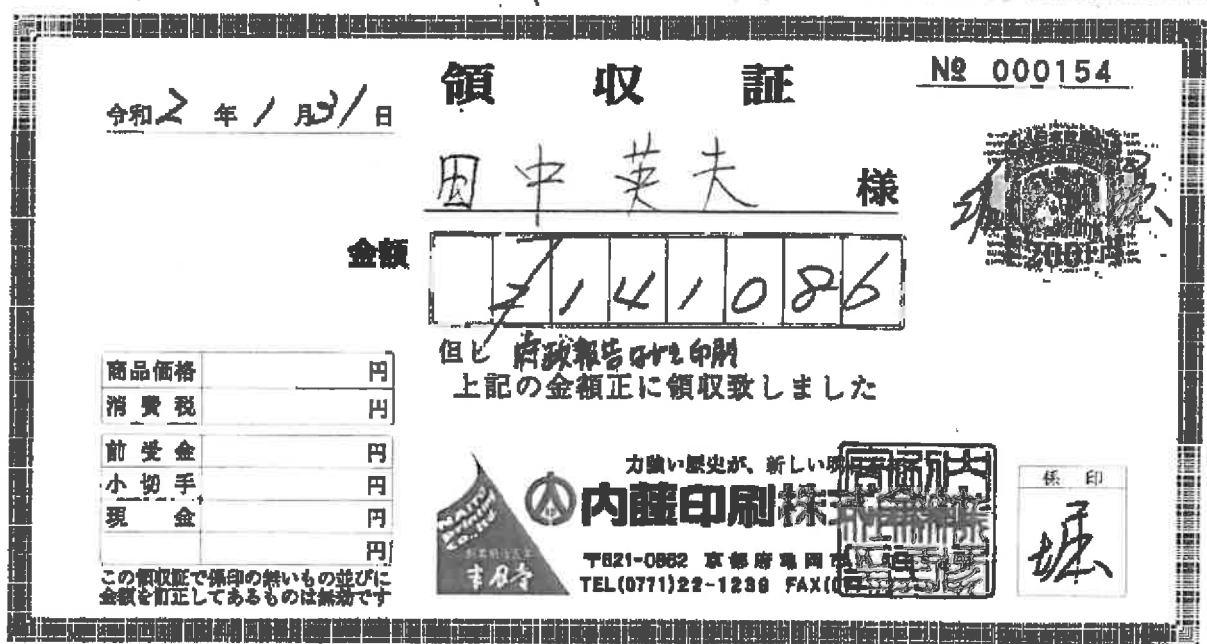 領収証
№ 000154
令和2年1月31日
田中英夫 様
金額
7141086
但し 府政報告はがき印刷
上記の金額正に領収致しました
200円
商品価格 円
消費税 円
前受金 円
小切手 円
現金 円
円
この領収証で係印の無いもの並びに
金額を訂正してあるものは無効です
力強い歴史が、新しい
内藤印刷株式会社
〒621-0862 京都府亀岡市
TEL(0771)22-1239 FAX(0
係印
堀